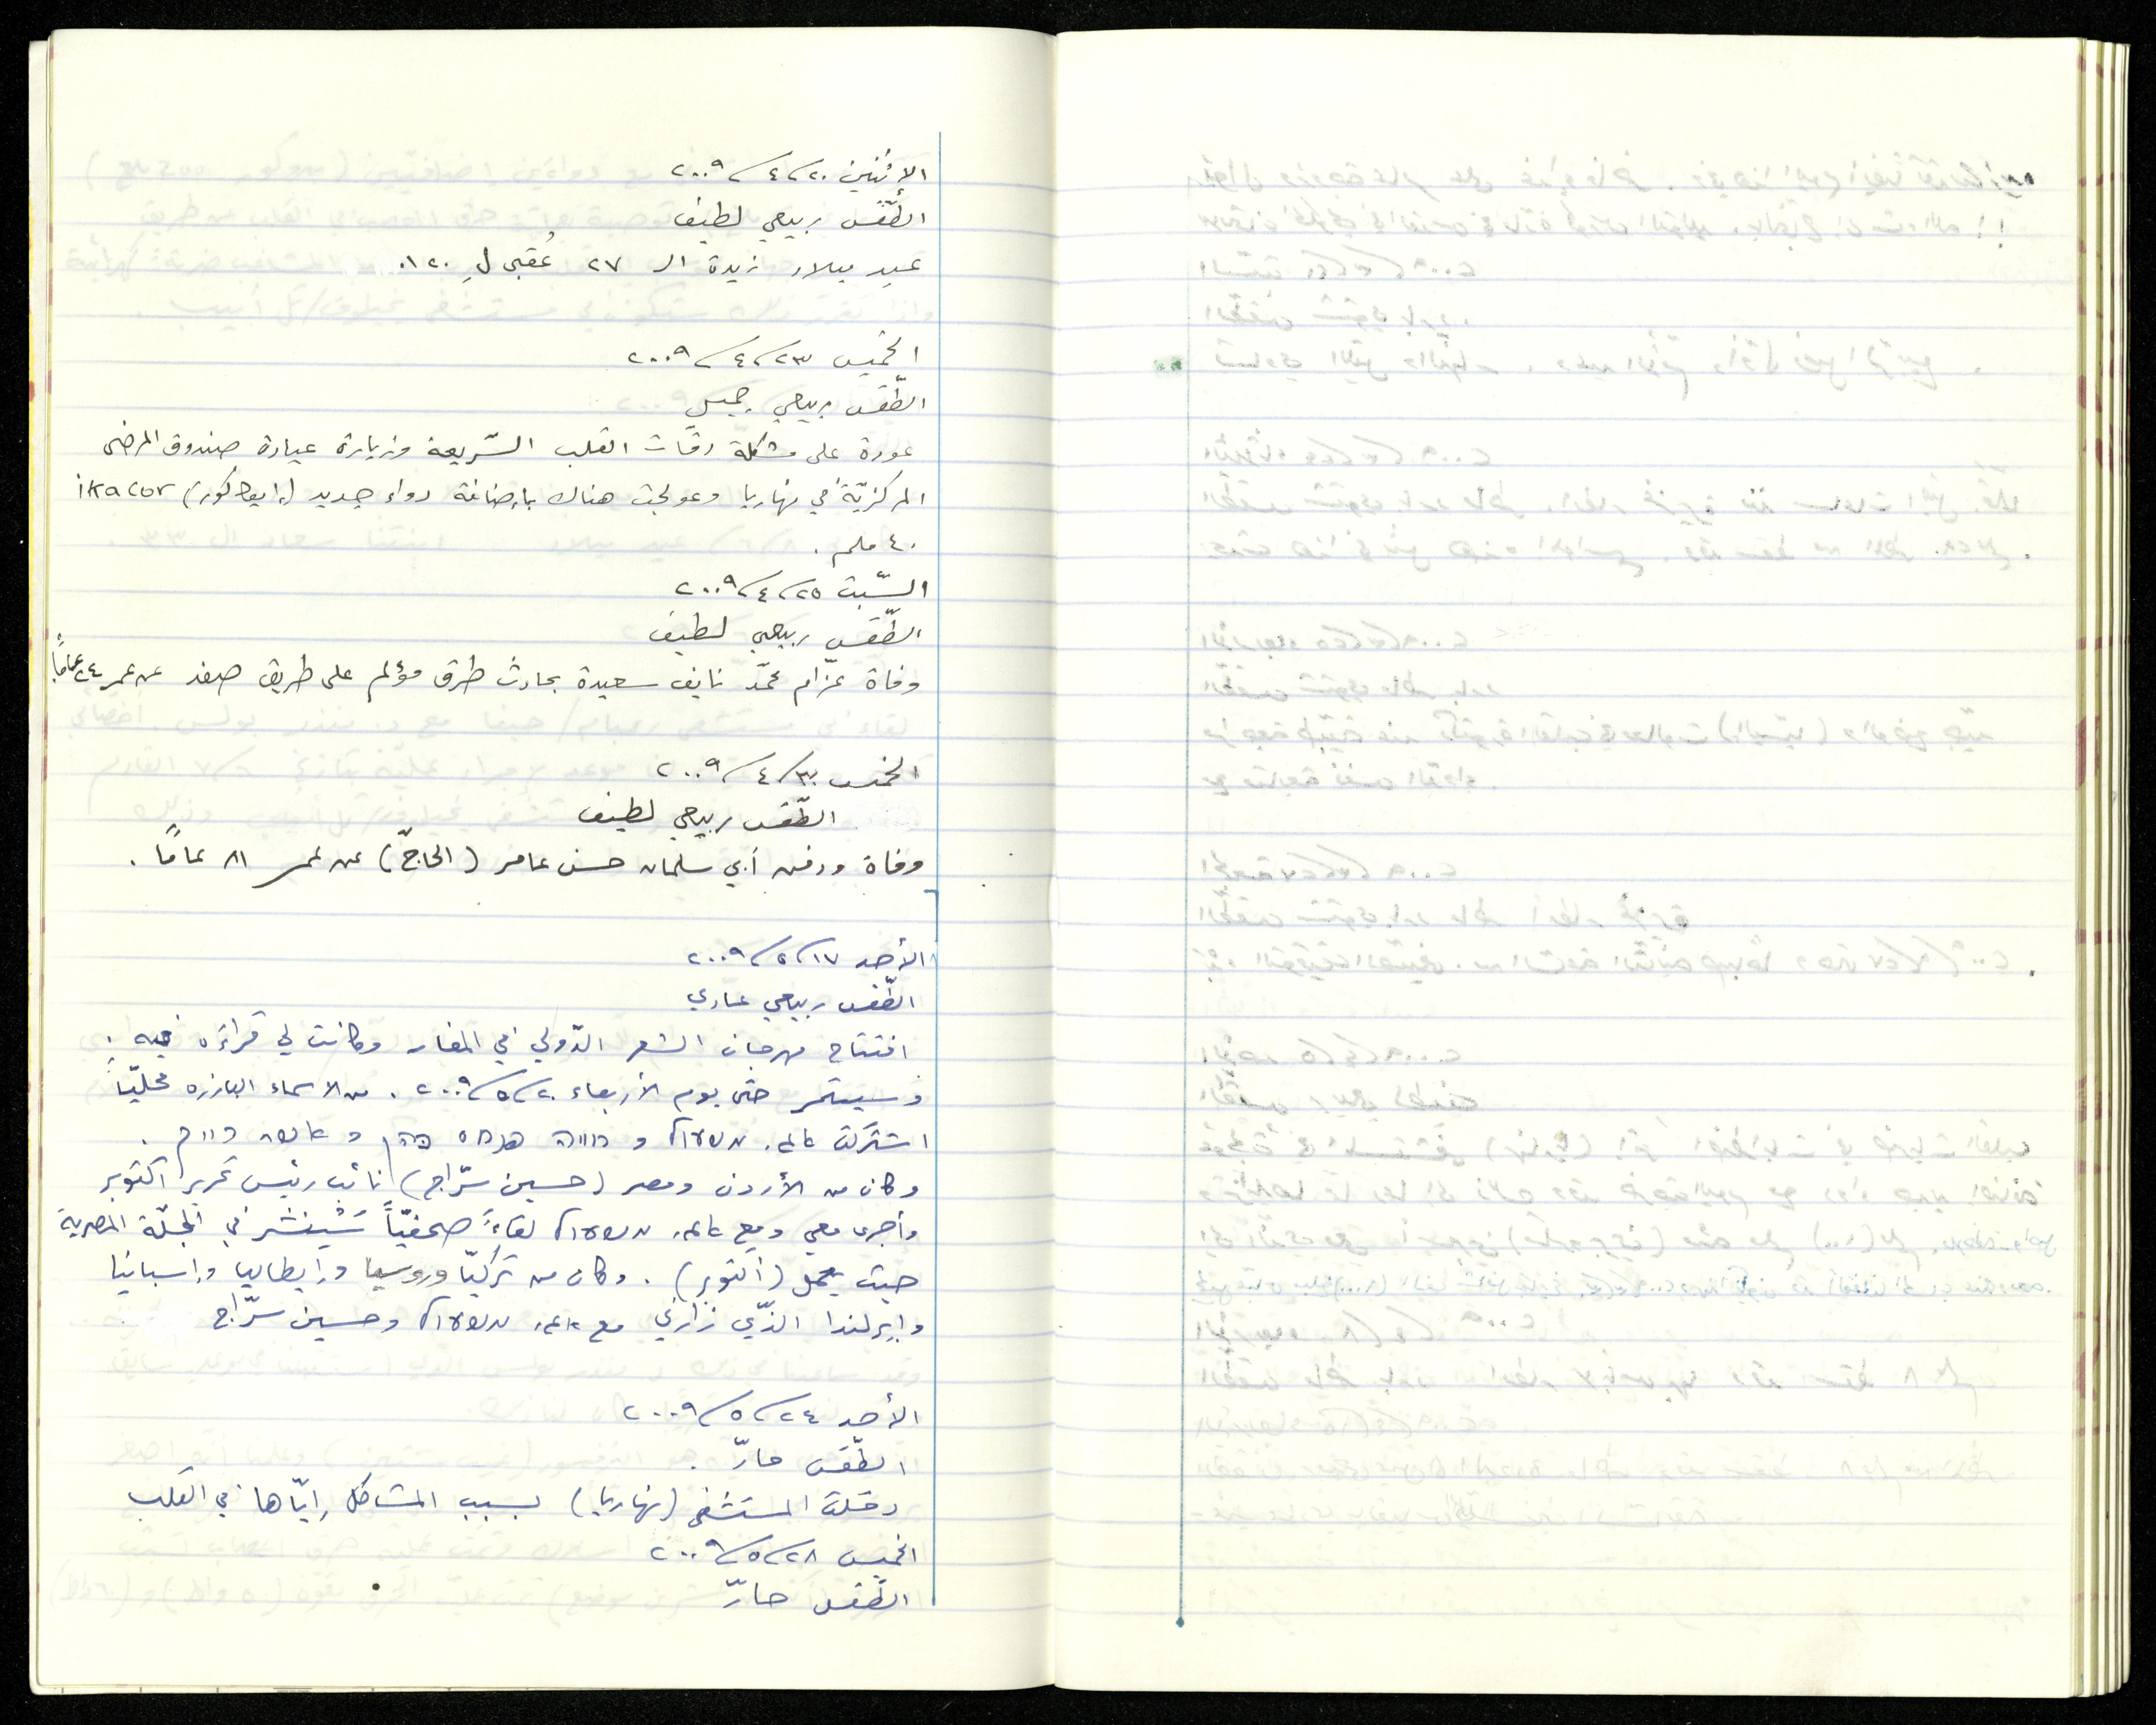 الإثنين ٢٠/٤/٢٠٠٩
الطّقس ربيعي لطيف
عيد ميلاد زيدة الـ ٢٧ عُقبى لِ ١٢٠.
الخميس ٢٣/٤/٢٠٠٩
الطّقس ربيعي جميل
عودة على مشكلة دقّات القلب السّريعة وزيارة عيادة صندوق المرضى
المركزيّة في نهاريا وعولجت هناك بإضافة دواء جديد (إيكاكور) ikacor
٤٠ ملم.
السّبت ٢٥/٤/٢٠٠٩
الطّقس ربيعي لطيف
وفاة عزّام محمّد نايف سعيدة بحادث طرق مؤلم على طريق صفد عن عمر ٢٤ عامًا.
الخميس ٣٠/٤/٢٠٠٩
الطّقس ربيعي لطيف
وفاة ودفن أبي سلمان حسن عامر (الحاجّ) عن عمر ٨١ عامًا.
الأحد ١٧/٥/٢٠٠٩
الطّقس ربيعي عادي
افتتاح مهرجان الشعر الدّولي في المغار وكانت لي قراءة فيه.
وسيستمر حتى يوم الأربعاء ٢٠/٥/٢٠٠٩. من الاسماء البارزه محليّاً
اشتركت
وكان من الأردن ومصر (حسين سّراج) نائب رئيس تحرير اكتوبر
وأجرى معي ومع لقاءً صحفيّاً سَيُنشر في المجلّة المصرية
حيث يعمل (أكتوبر). وكان من تركيّا وروسيا وإيطاليا وإسبانيا
وإيرلندا الذّي زارني مع وحسين سرّاج
الأحد ٢٤/٥/٢٠٠٩
الطّقس حارّ.
دخلت المستشفى (نهاريا) بسبب المشاكل إيّاها في القلب
الخميس ٢٨/٥/٢٠٠٩
الطّقس حارّ